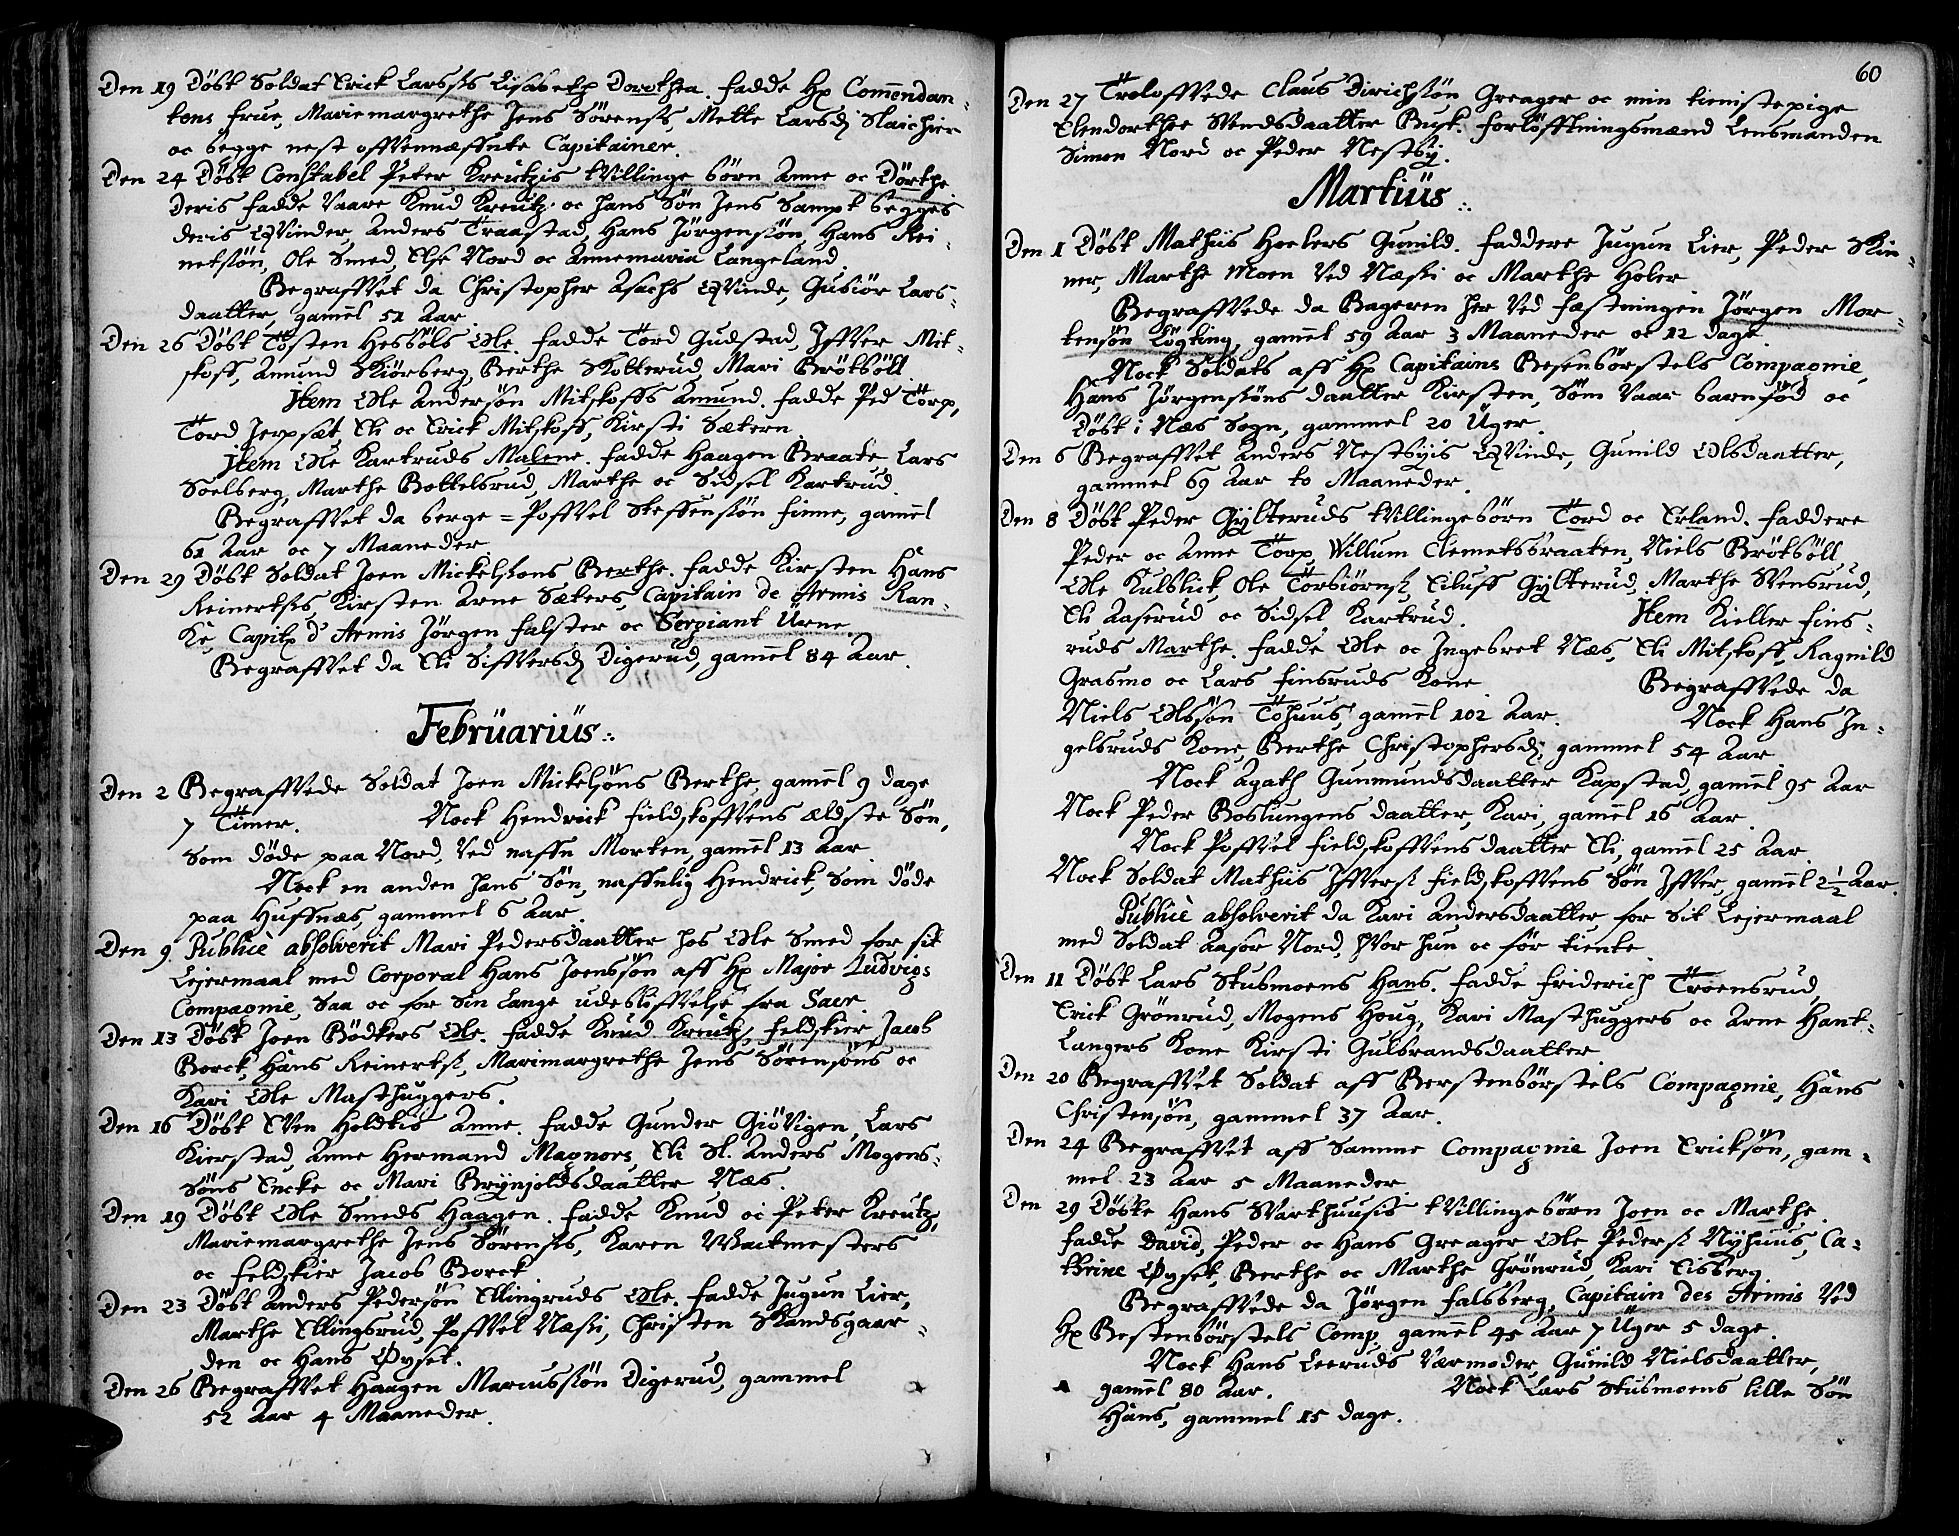 Den 19 Döbt Soldat Erick Larsøs Lisabeth Dorothea. fadde Hr Comendan-
tens frue, Mariemargrethe Jens Sörensøs, Mette Larsd. Slaichier
oc begge nest offvennæffnte Capitainer.
Den 24 Döbt Constabel Peter Kreutzis tvillinge börn Anne oc Dörthe
deris fadde vaare Knud Kreutz oc hans Sön Jens Sampt begges
deris qvinder, Anders Traastad, Hans Jörgensön, Hans Rei-
netsön, Ole Smed, Else Nord oc Annemaria Langeland.
Begraffvet da Christopher Isachs qvinde, Gubiör Lars-
daatter, gamel 51 Aar
Den 26 Döbt Tosten Hesböls Ole. fadde Tord Gudstad, Iffver Mit-
skoff, Amund Skiörberg, Berthe Skotterud, Mari Brötböll
Item Ole Andersön Mitskoffs Amund. fadde Ped Törp,
Tord Jerpsæt, Eli oc Erick Mitskoff, Kirsti Sætern.
Item Ole Kartruds Malene. fadde Haagen Braate Lars
Soelberg, Marthe Bottelsrud, Marthe oc Sidsel Kartrud.
Begraffvet da berge = Poffvel Steffensön finne, gamel
61 Aar oc 7 Maaneder
Den 29 Döbt Soldat Joen Mickelsons Berthe. fadde Kirsten Hans
Reinertsøs, Kirsten Arne Sæters, Capitain de Armis Ran-
ke, Capitn d' Armis Jörgen falster oc Sergiant Urne.
Begraffvet da Eli Siffversd. Digerud, gamel 84 Aar.
Februarius.:
Den 2 Begraffvede Soldat Joen Mickelsöns Berthe, gamel 9 dage
7 Timer. Nock Hendrick fieldskoffvens ældste Sön,
som döde paa Nord, ved naffn Morten, gamel 13 Aar
Nock en anden hans Sön, naffnlig Hendrick, som döde
paa Huffnæs, gammel 6 Aar.
Den 9. Publicè absolverit Mari Pedersdaatter hos Ole Smed for sit
Leiermaal med Corporal Hans Joenssön aff Hr Major Ludvigs
Compagnie, saa oc for sin lange udebliffvelse fra Sacr.
Den 13 Döbt Joen Bödkers Ole. fadde Knud Kreutz, feldskier Jacob
Borck, Hans Reinertsø, Marimargrethe Jens Sörensöns oc
Kari Ole Masthuggers.
Den 16 Döbt Even Holdtis Anne. fadde Gunder Giövigen, Lars
Kierstad, Anne Hermand Magnors, Eli Sl. Anders Mogens-
söns Encke oc Mari Brynjoldsdaatter Næs.
Den 19 Döbt Ole Smeds Haagen. fadde Knud oc Peter Kreutz,
Mariemargrethe Jens Sörensøs, Karen Wactmesters
oc feldskier Jacob Borck
Den 23 Döbt Anders Pedersön Ellingruds Ole. fadde Jugun Lier,
Marthe Ellingsrud, Poffvel Næsti, Christen Skandsgaar-
den oc Hans Öyset.
Den 26 Begraffvet Haagen Marcussön Digerud, gammel
52 Aar 4 Maaneder.
60
Den 27 Troloffvede Claus Dirichsön Greager oc min tienistepige
Elendorthee Svendsdaatter Busk. forlöfftningsmænd Lensmanden
Simen Nord oc Peder Nestby.
Martius.:
Den 1 Döbt Mathiis Hoelers Gunild. faddere Jugun Lier, Peder Skin-
ner, Marthe Moen ved Næsti oc Marthe Holer
Begraffvede da Bageren her ved fæstningen Jörgen Mor-
tensön Lögting, gamel 59 Aar 3 Maaneder oc 12 dage.
Nock Soldats aff Hr Capitains Besenbörstels Compagnie,
Hans Jörgensöns daatter Kirsten, som vaar barnföd oc
Döbt i Næs Sogn, gammel 20 Uger.
Den 6 Begraffvet Anders Nestbyis qvinde, Gunild Olsdaatter,
gammel 69 Aar to Maaneder.
Den 8 Döbt Peder Gylteruds tvillingebörn Tord oc Erland. faddere
Peder oc Anne Törp, Willum Clemetsbraaten, Niels Brötböll
Ole Kulblick, Ole Törbiörnsø, Eiluff Gylterud, Marthe Svensrud,
Eli Aaserud oc Sidsel Kartrud. Item Kieller fins-
ruds Marthe. fadde Ole oc Ingebret Næs, Eli Mitskoff, Ragnild
Grasmo oc Lars finsruds Kone Begraffvede da
Niels Olssön Töhuus, gamel 102 Aar. Nock Hans In-
gelsruds Kone, Berthe Christophersd. gammel 54 Aar
Nock Agath Gunmundsdaatter Kapstad, gamel 95 Aar
Nock Peder Boslungens daatter, Kari, gamel 16 Aar.
Nock Poffvel fieldskoffvens daatter Eli, gamel 25 Aar
Nock Soldat Mathiis Iffversø fieldskoffvens Sön Iffver, gamel 2 1/2 Aar.
Publicè absolverit da Kari Andersdaatter for sit Lejermaal
med Soldat Aasor Nord, hvor hun oc för tiente.
Den 11 Döbt Lars Stubmoens Hans. fadde friderich Troensrud
Erick Grönrud, Mogens Houg, Kari Masthuggers oc Arne Hant-
Langers Kone Kirsti Gulbrandsdaatter
Den 20 Begraffvet Soldat aff Berstenbörstels Compagnie, Hans
Christensön, gammel 37 Aar.
Den 24 Begraffvet aff samme Compagnie Joen Ericksön, gam-
mel 23 Aar 5 Maaneder
Den 29 Döbte Hans Svarthuusis tvillingebörn Joen oc Marthe.
fadde David, Peder oc Hans Greager Ole Pedersø Nyhuus, Ca-
thrine Öyset, Berthe oc Marthe Grönrud, Kari Eisberg
Begraffvede da Jörgen falsberg, Capitain des Armis ved
Hr Bestenbörstels Comp. gamel 45 Aar 7 Uger 5 dage.
Nock Hans Leeruds værmoder Gunild Nielsdaatter,
gamel 80 Aar. Nock Lars Stubmoens lille Sön
Hans, gammel 15 dage.